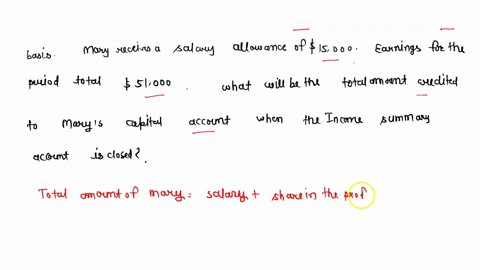 basis. Mary receives a salary allowance of $15,000. Earnings for the
period total $51,000. what will be the total amount credited
to Mary's capital account when the Income summary
acount is closed?.
Total amount of mary = salary + share in the prof